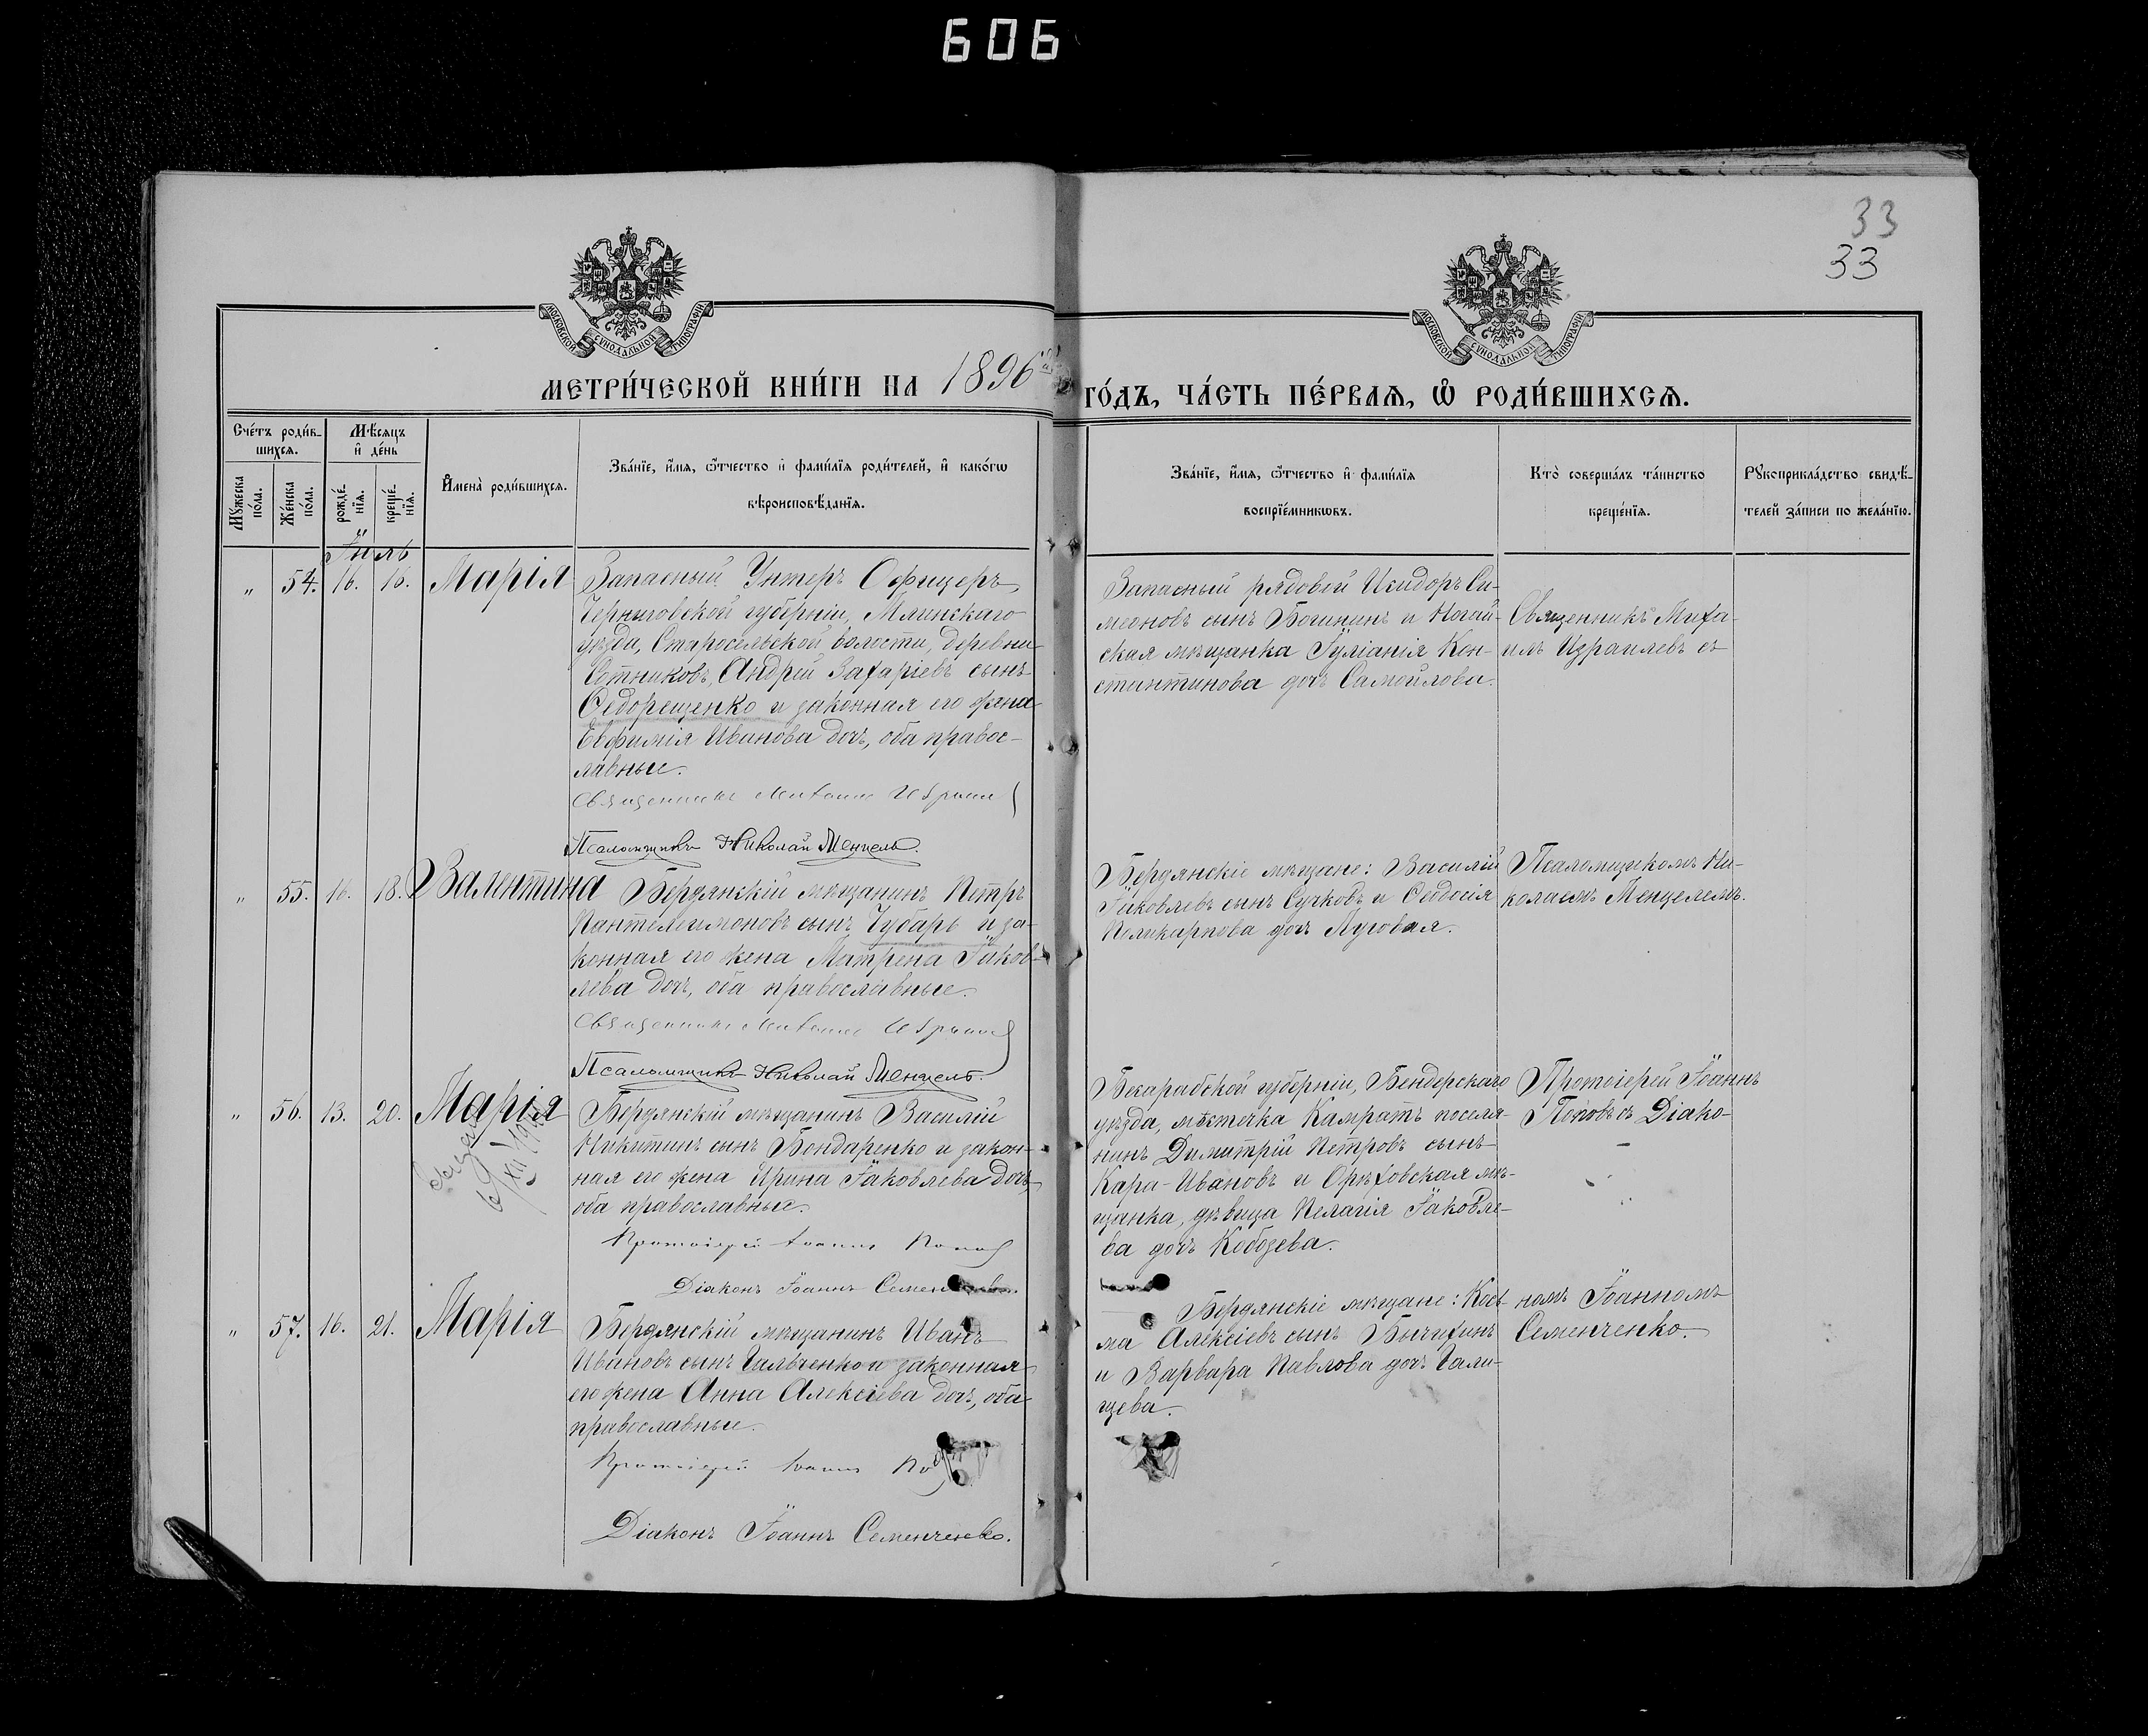 606
33
33
МОСКОВСКОЙ СѴНОДАЛЬНОЙ ТИПОГРАФІИ
МОСКОВСКОЙ СѴНОДАЛЬНОЙ ТИПОГРАФІИ
МЕТРИ́ЧЕСКОЙ КНИ́ГИ НА 1896 ГО́ДЪ, ЧА́СТЬ ПЕ́РВАѦ, Ѡ РОДИ́ВШИХСѦ.
Сче́тъ роди́в-
шихсѧ.
Мꙋ́жеска по́ла.
Же́нска по́ла.
Мѣ́сѧцъ
и де́нь
рожде́-
нїѧ.
креще́-
нїѧ.
Имена̀ роди́вшихсѧ.
Зва́нїе, и́мѧ, ѻ́тчество и фами́лїѧ роди́телей, и како́гѡ
вѣроисповѣ́данїѧ.
Зва́нїе, и́мѧ, ѻ́тчество и фами́лїѧ
воспрїе́мникѡвъ.
Кто̀ соверша́лъ та́инство
креще́нїѧ.
Рꙋкоприкла́дство свидѣ́-
телей за́писи по жела́нїю.
Іюль
„ 54. 16. 16. Марія
Запасный Унтеръ Офицеръ,
Черниговской губерніи, Мглинскаго
уѣзда, Старосельской волости, деревни
Сотниковъ, Андрей Захаріевъ сынъ
Федорещенко и законная его жена
Евфимія Иванова дочь, оба правос-
лавные.
Священникъ Михаилъ Израил
Псаломщикъ Николай Менцель.
Запасный рядовой Исидоръ Си-
меоновъ сынъ Богининъ и Ногай-
ская мѣщанка Іуліанія Кон-
стантинова дочь Самойлова.
Священникъ Миха-
илъ Израилевъ съ
„ 55. 16. 18. Валентина
Бердянскій мѣщанинъ Петръ
Пантелеимоновъ сынъ Чубарь и за-
конная его жена Матрена Іаков-
лева дочь, оба православные.
Священникъ Михаилъ Израил
Псаломщикъ Николай Менцель.
Бердянскіе мѣщане: Василій
Іаковлевъ сынъ Сучковъ и Феодосія
Поликарпова дочь Луговая.
Псаломщикомъ Ни-
колаемъ Менцелемъ.
„ 56. 13. 20. Марія
Бердянскій мѣщанинъ Василій
Никитинъ сынъ Бондаренко и закон-
ная его жена Ирина Іаковлева дочь,
оба православные.
Протоіерей Іоаннъ Поповъ
Діаконъ Іоаннъ Семенченко.
Бесарабской губерніи, Бендерскаго
уѣзда, мѣстечка Камратъ поселя-
нинъ Димитрій Петровъ сынъ
Кара-Ивановъ и Орѣховская мѣ-
щанка, дѣвица Пелагія Іаковле-
ва дочь Кобозева.
Протоіерей Іоаннъ
Поповъ съ Діако-
„ 57. 16. 21. Марія
Бердянскій мѣщанинъ Иванъ
Ивановъ сынъ Гальченко и законная
его жена Анна Алексіева дочь, оба
православные.
Протоіерей Іоаннъ По
Діаконъ Іоаннъ Семенченко.
Бердянскіе мѣщане: Кось-
ма Алексіевъ сынъ Бычихинъ
и Варвара Павлова дочь Гали-
щева.
номъ Іоанномъ
Семенченко.